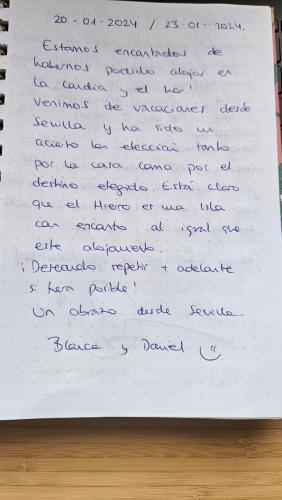 20-01-2024 / 23-01-2024.
Estamos encantados de
habernos podido alojar en
la candia y el har!
Venimos de vacaciones desde
Sevilla y ha sido un
acierto la elección tanto
por la casa como por el
destino elegido. Está claro
que el Hierro es una Isla
con encanto al igual que
este alojamiento.
¡Deseando repetir + adelante
si fuera posible!
Un abrazo desde Sevilla.
Blanca y Daniel